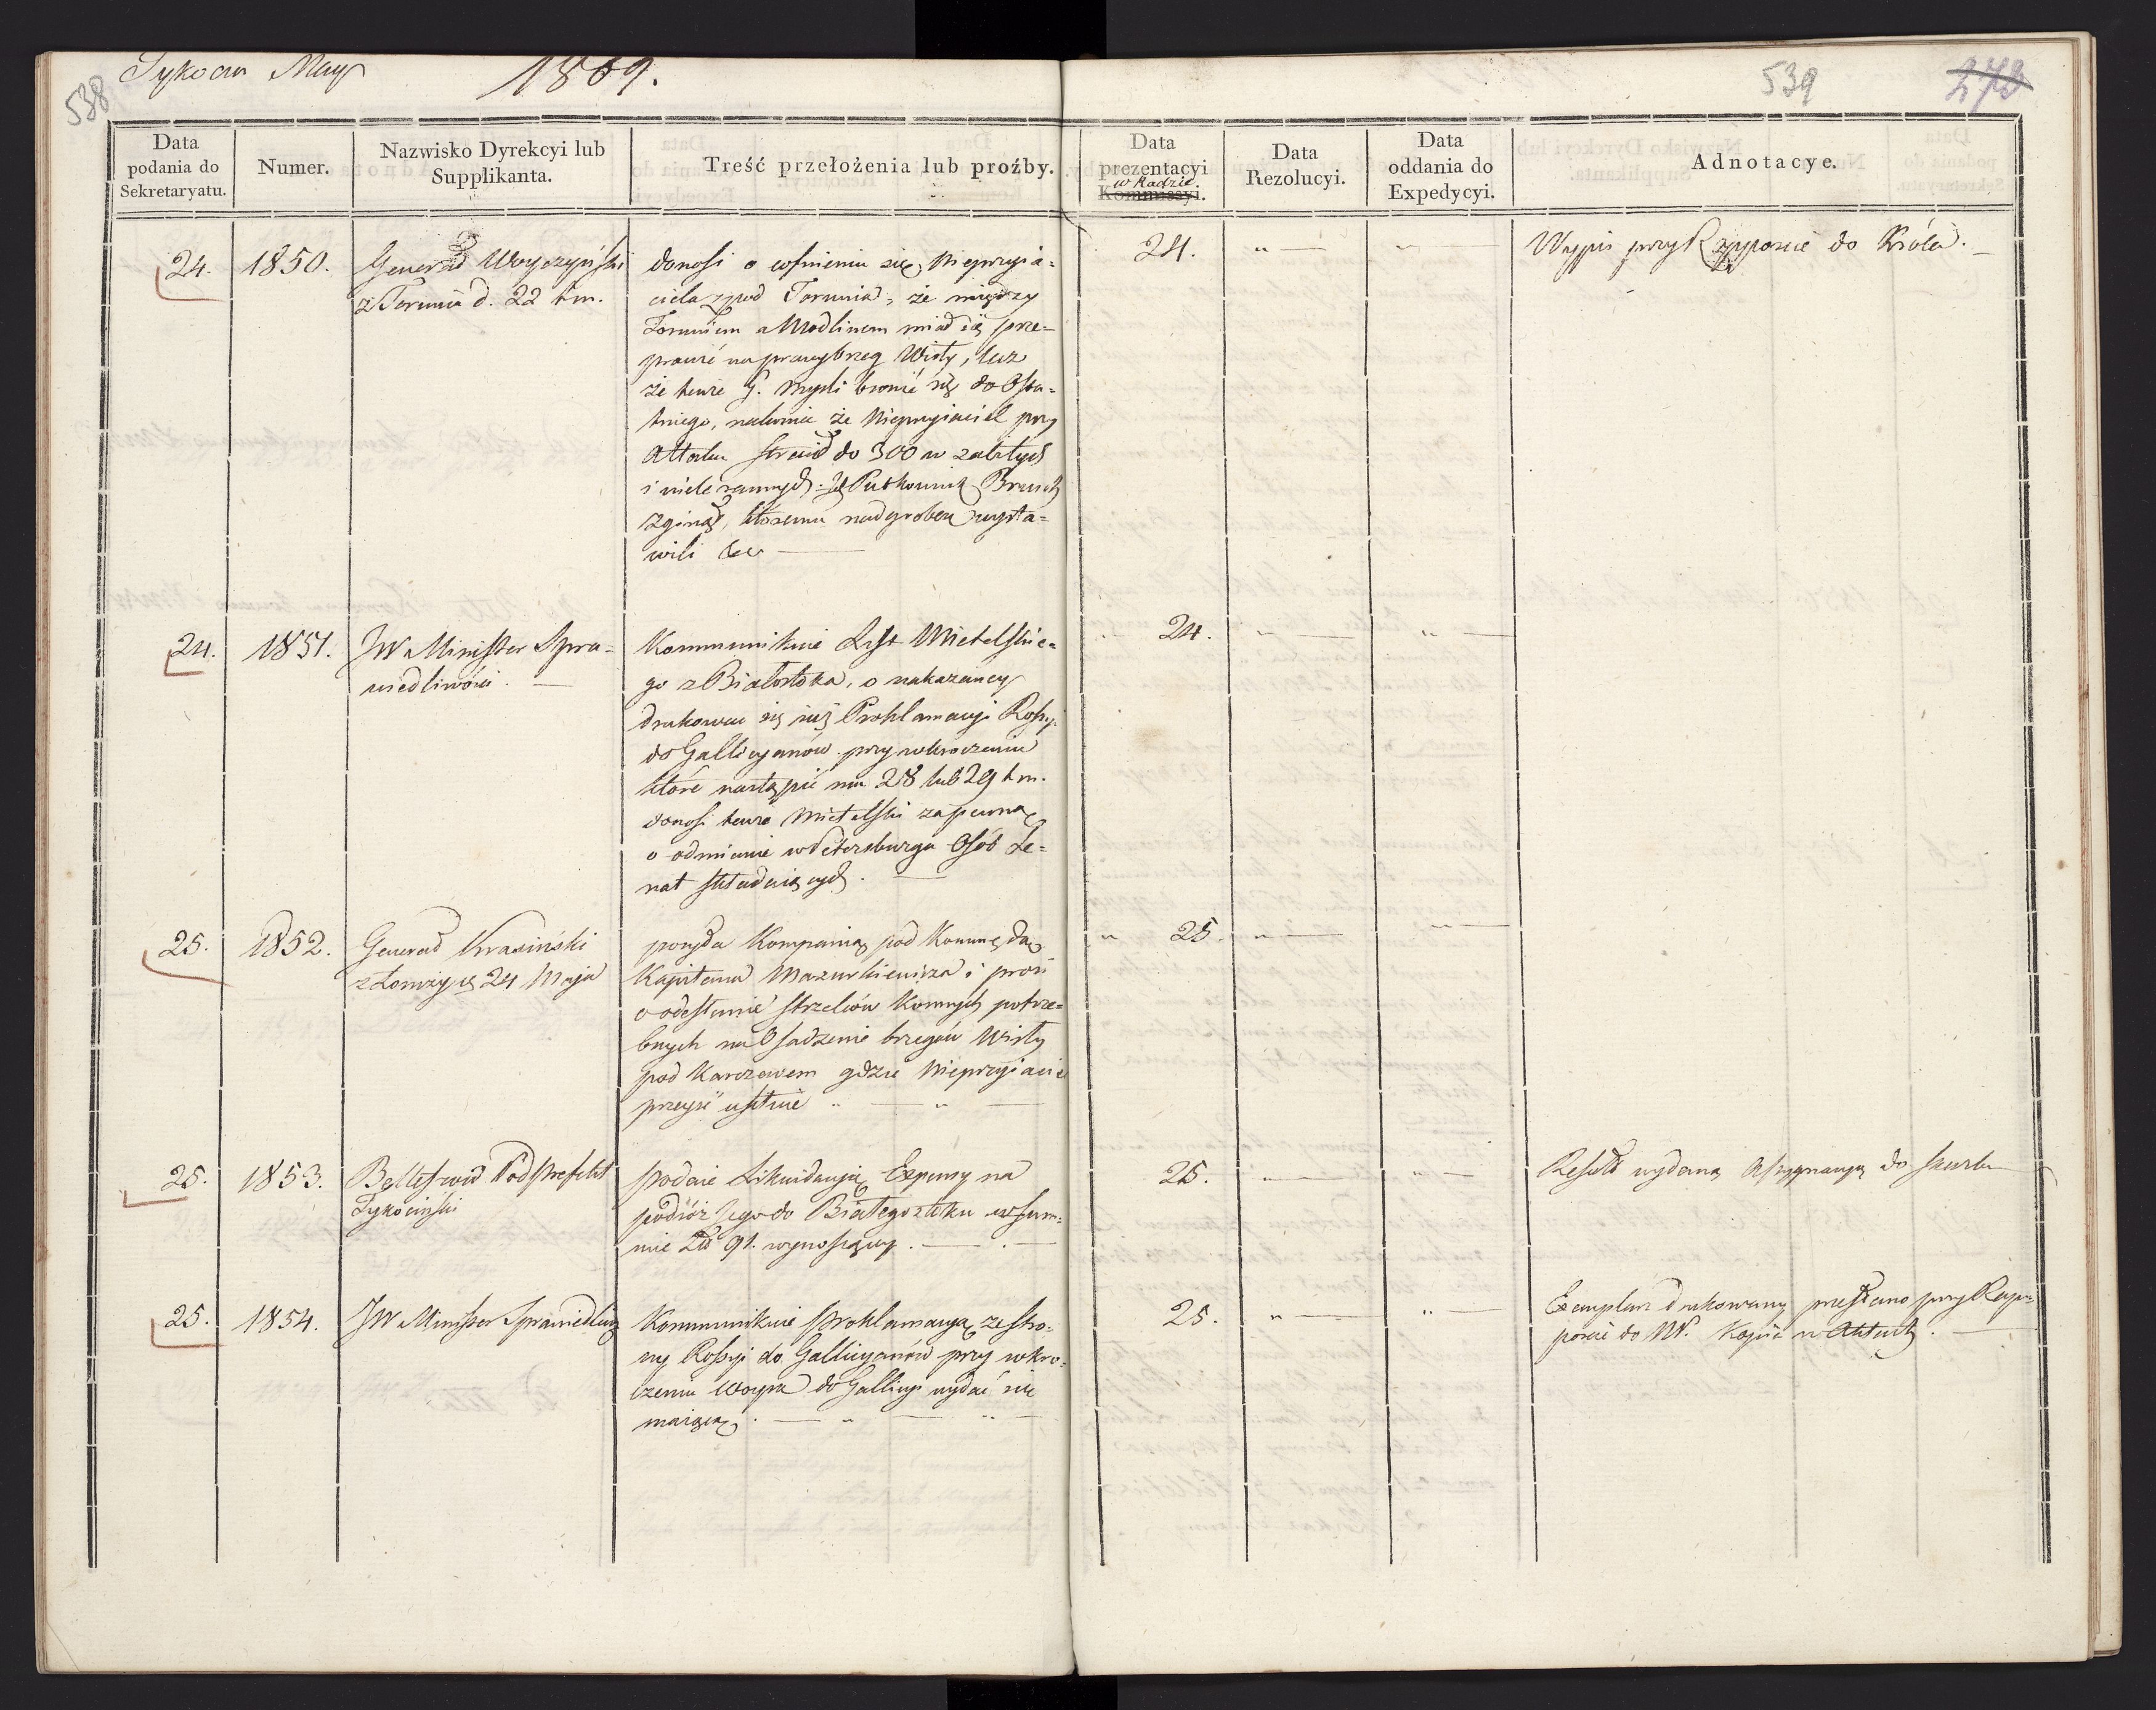 Tykocin May 1809.
538
539
273
Data podania do Sekretaryatu.
Numer.
Nazwisko Dyrekcyi lub Supplikanta.
Treść przełożenia lub proźby.
Data prezentacyi Kommissyi. w Radzie.
Data Rezolucyi.
Data oddania do Expedycyi.
Adnotacye.
24.
1850.
Generał Woyczyński
z Torunia d. 22 t. m.
donosi o cofnieniu się Nieprzyia-
ciela zpod Torunia, że między
Toruniem a Modlinem miał się prze-
prawić na prawy brzeg Wisły, lecz
że tenże G. myśli bronić się do Osta-
tniego, nakoniec że Nieprzyiaciel przy
Attaku stracił do 300 w zabitych
i wiele rannych. Pułkownik
zginął, któremu nadgrobek wysta-
wili &c
24.
Wypis przy Rapporcie do Króla.
24.
1851.
JW Minister Spra-
wiedliwości.
Kommunikuie List Mietelskie-
go z Białostoka, o nakazaney
drukować się już Proklamacyi Rossyi
do Gallicyanów przy wkroczeniu
które nastąpić ma 28 lub 29 t. m.
donosi tenże Mietelski zapewną
o odmianie w Petersburgu Osób Se-
nat składaiących.
24.
25.
1852.
Generał Krasiński
z Łomży 24 Maja
Kompanią pod Kommędą
Kapitana Mazurkiewicza i prosi
o odesłanie strzelców Konnych potrze-
bnych na Osadzenie brzegów Wisły
pod Karczewem gdzie Nieprzyiaciel
przeyść usiłuie
25.
25.
1853.
Podprefekt
Tykociński
podaie Likwidacyią Expensy na
podróż Jego do Białegostoku w Sum-
mie Zł 91. wynoszącey.
25.
wydaną Assygnacyą do skarbu
25.
1854.
JW Minister Sprawiedliw
Kommunikuie Proklamacyą ze stro-
ny Rossyi do Gallicyanów przy wkro-
czeniu woysk do Gallicyi wydać się
maiącą.
25.
Exemplarz drukowany przesłano przy Rap-
porcie do NP. Kopiia w Aktach.